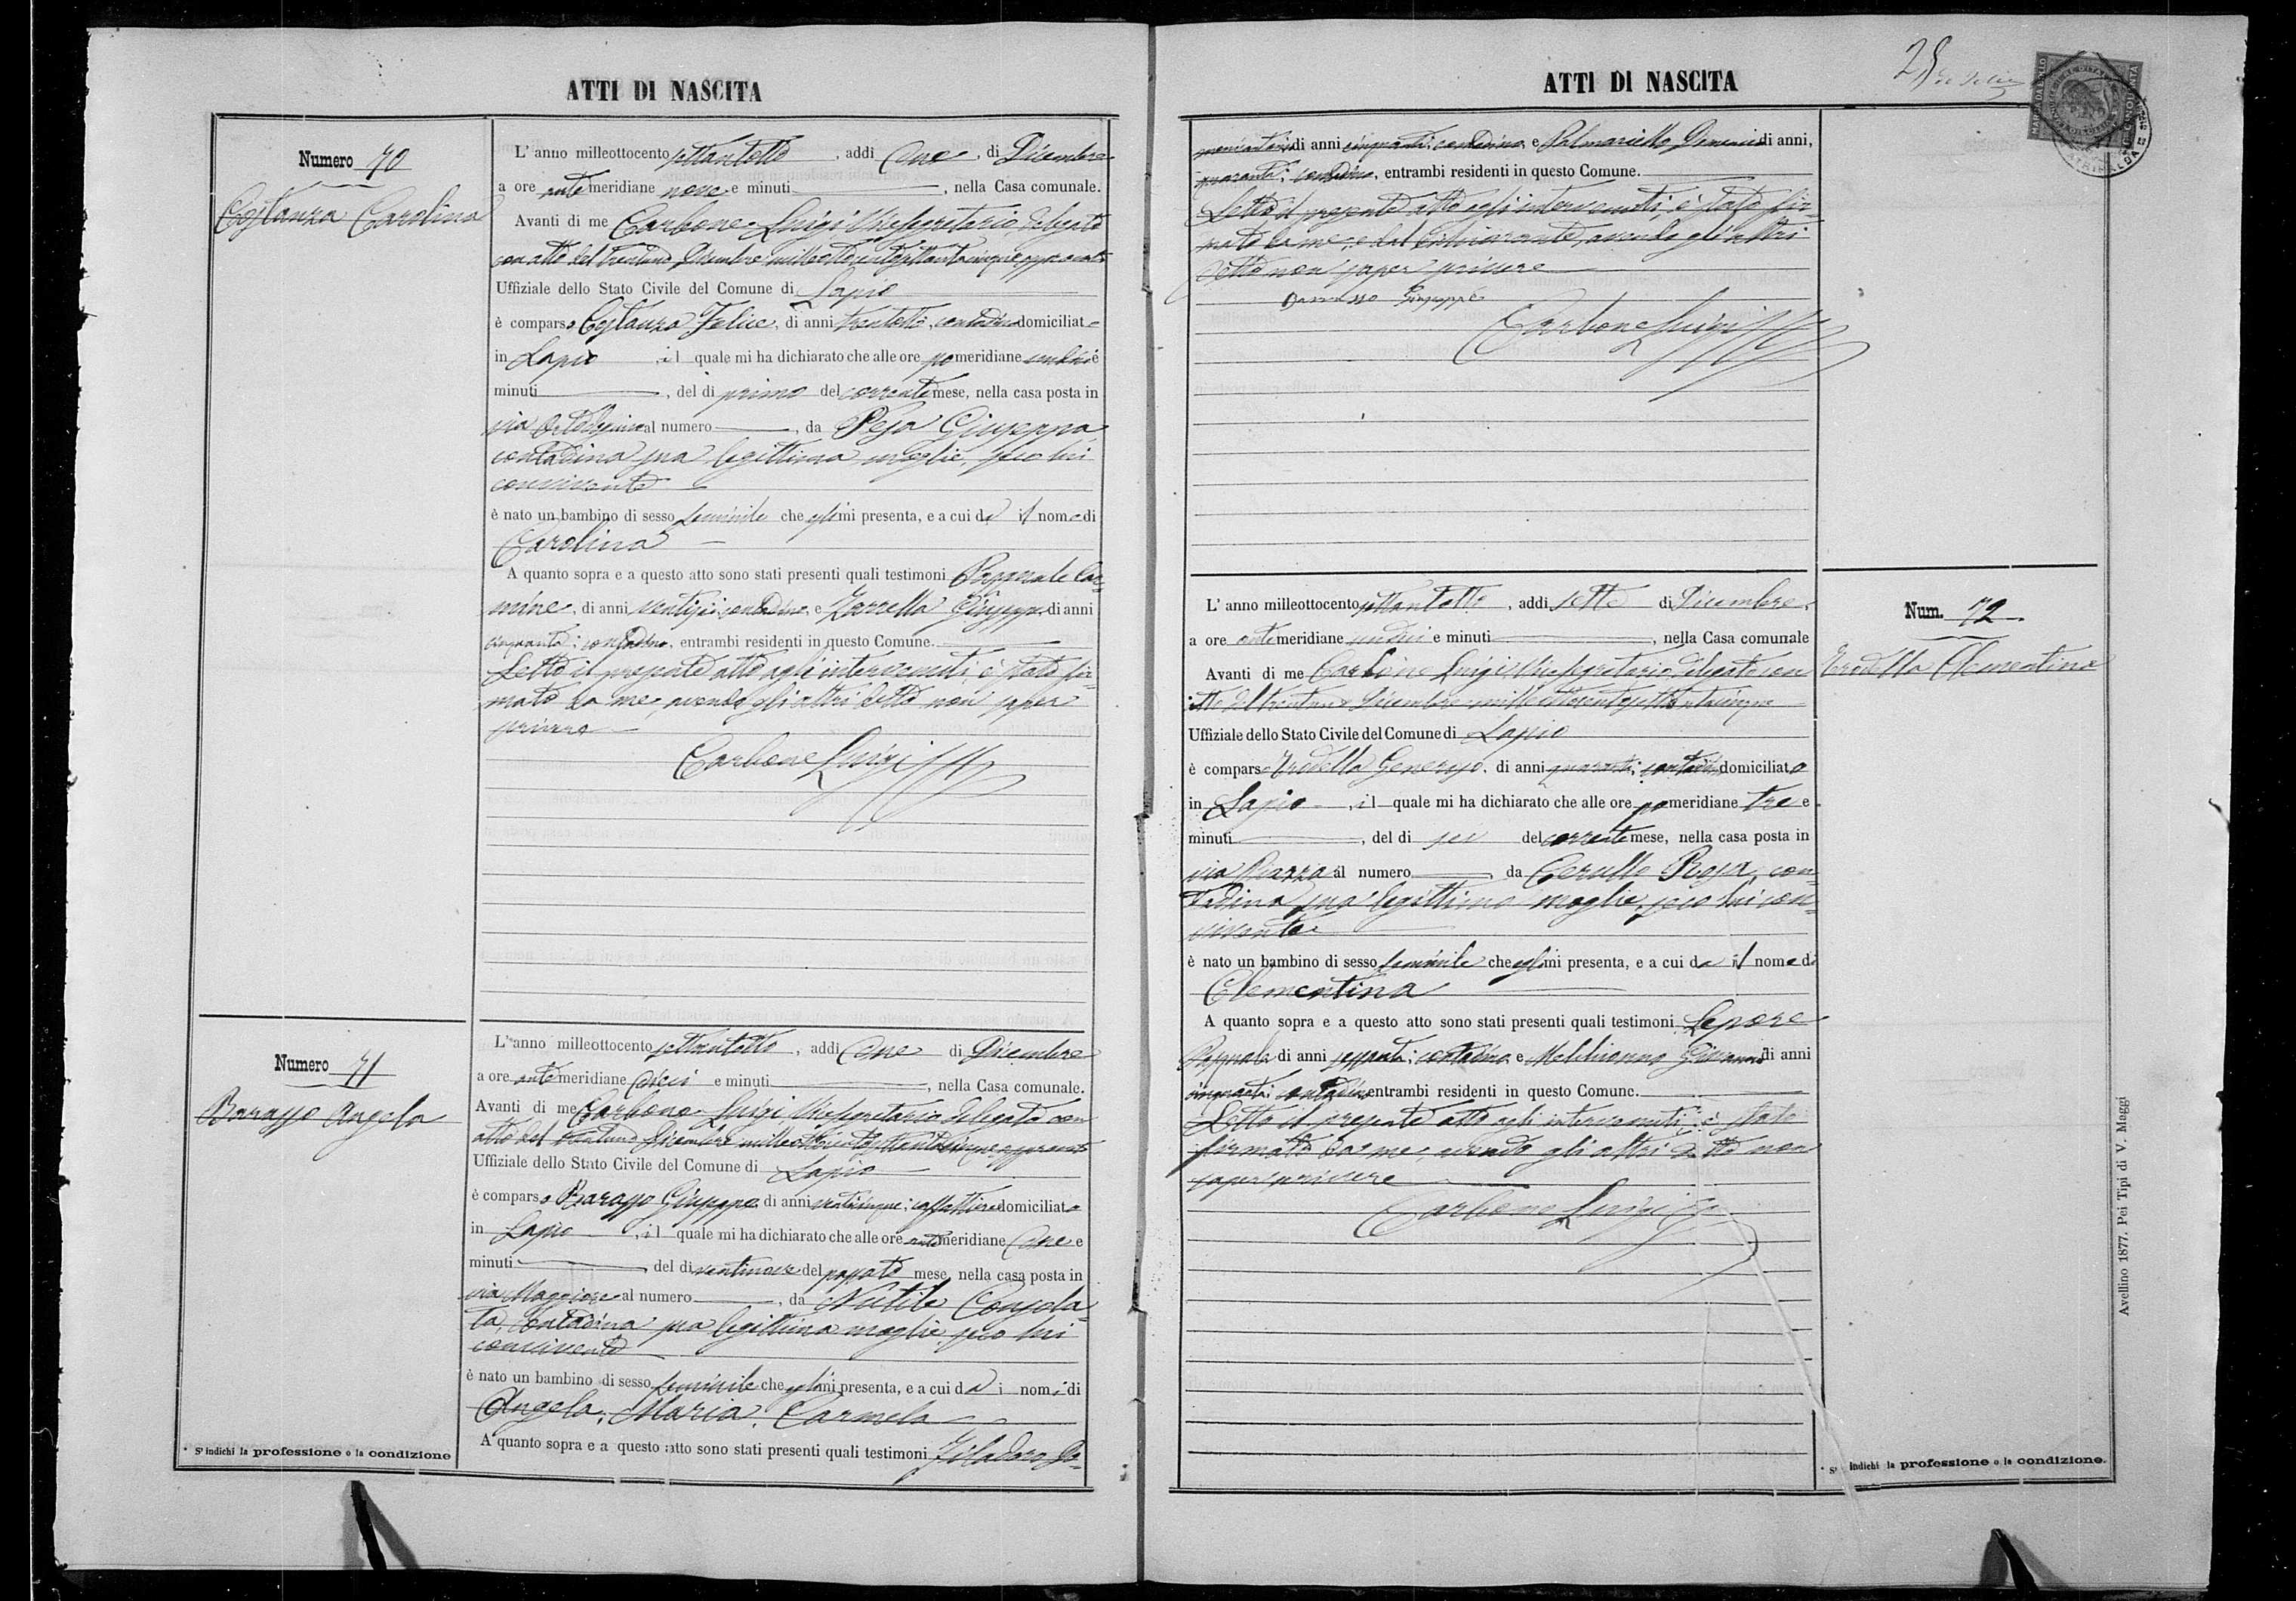 ATTI DI NASCITA
Numero 70
Costanza Carolina
L'anno milleottocento settantotto, addì due, di Dicembre
a ore antemeridiane nove e minuti, nella Casa comunale.
Avanti di me Carbone Luigi Vicesegretario delegato
con atto del trentuno Dicembre milleottocentosettantacinque approvato
Uffiziale dello Stato Civile del Comune di Lapio
è comparso Costanza Felice, di anni trentotto, contadino domiciliato
in Lapio, il quale mi ha dichiarato che alle ore pomeridiane undici e
minuti, del dì primo del corrente mese, nella casa posta in
via al numero, da Pesa Giuseppa
contadina sua legittima moglie, seco lui
convivente
è nato un bambino di sesso feminile che egli mi presenta, e a cui dà il nome di
Carolina
A quanto sopra e a questo atto sono stati presenti quali testimoni Pasquale Car-
mine, di anni ventisei contadino, e Zarrella Giuseppe di anni
cinquanta; contadino, entrambi residenti in questo Comune.
Letto il presente atto agli intervenuti, è stato fir-
mato da me, avendo gli altri detto non saper
scrivere
Carbone Luigi
Numero 71
Barasso Angela
L'anno milleottocento settantotto, addì due di Dicembre
a ore antemeridiane dieci e minuti, nella Casa comunale.
Avanti di me Carbone Luigi, Vicesegretario delegato con
atto del trentuno Dicembre milleottocentosettantacinque approvato
Uffiziale dello Stato Civile del Comune di Lapio
è comparso Barasso Giuseppe di anni venticinque; caffettiere domiciliato
in Lapio, il quale mi ha dichiarato che alle ore antemeridiane due e
minuti, del dì ventinove del passato mese, nella casa posta in
via Maggiore al numero, da Nutile Consola-
ta, contadina sua legittima moglie, seco lui
convivente
è nato un bambino di sesso feminile che egli mi presenta, e a cui dà i nomi di
Angela, Maria, Carmela
A quanto sopra e a questo atto sono stati presenti quali testimoni Filadoro Do-
* Si indichi la professione o la condizione
ATTI DI NASCITA
25
di anni cinquanta, contadino, e Palmariello Domenico di anni,
quaranta; contadino, entrambi residenti in questo Comune.
Letto il presente atto agli intervenuti, è stato fir-
mato da me, e dal dichiarante, avendo gli altri
detto non saper scrivere
Barasso Giuseppe
Carbone Luigi
Num. 72
Trodella Clementina
L'anno milleottocento settantotto, addì sette di Dicembre,
a ore antemeridiane undici e minuti, nella Casa comunale
Avanti di me Carbone Luigi Vicesegretario delegato con
atto del trentuno Dicembre milleottocentosettantacinque
Uffiziale dello Stato Civile del Comune di Lapio
è comparso Trodella Generoso, di anni quaranta; contadino domiciliato
in Lapio, il quale mi ha dichiarato che alle ore pomeridiane tre e
minuti, del dì sei del corrente mese, nella casa posta in
via Piazza al numero da Cerullo Rosa, con-
tadina sua legittima moglie, seco lui con-
vivente
è nato un bambino di sesso feminile che egli mi presenta, e a cui dà il nome di
Clementina
A quanto sopra e a questo atto sono stati presenti quali testimoni Lepore
Pasquale di anni sessanta; contadino, e Melchionno Giovanni di anni
cinquanta; contadino entrambi residenti in questo Comune.
Letto il presente atto agli intervenuti, è stato
firmato da me avendo gli altri detto non
saper scrivere
Carbone Luigi
* Si indichi la professione o la condizione.
Avellino 1877. Pei Tipi di V. Maggi